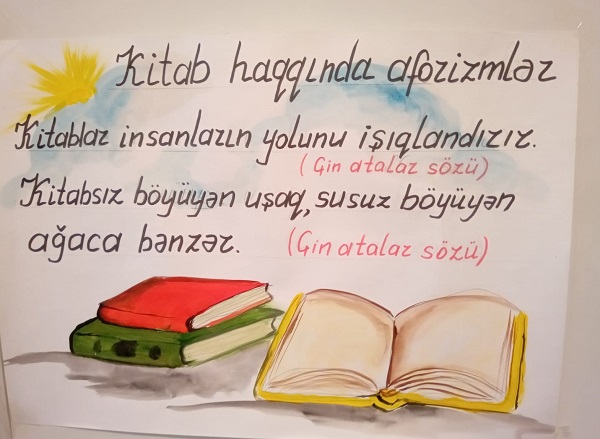 Kitab haqqında aforizmlər
Kitablar insanların yolunu işıqlandırır.
(Çin atalar sözü)
Kitabsız böyüyən uşaq, susuz böyüyən
ağaca bənzər. (Çin atalar sözü)